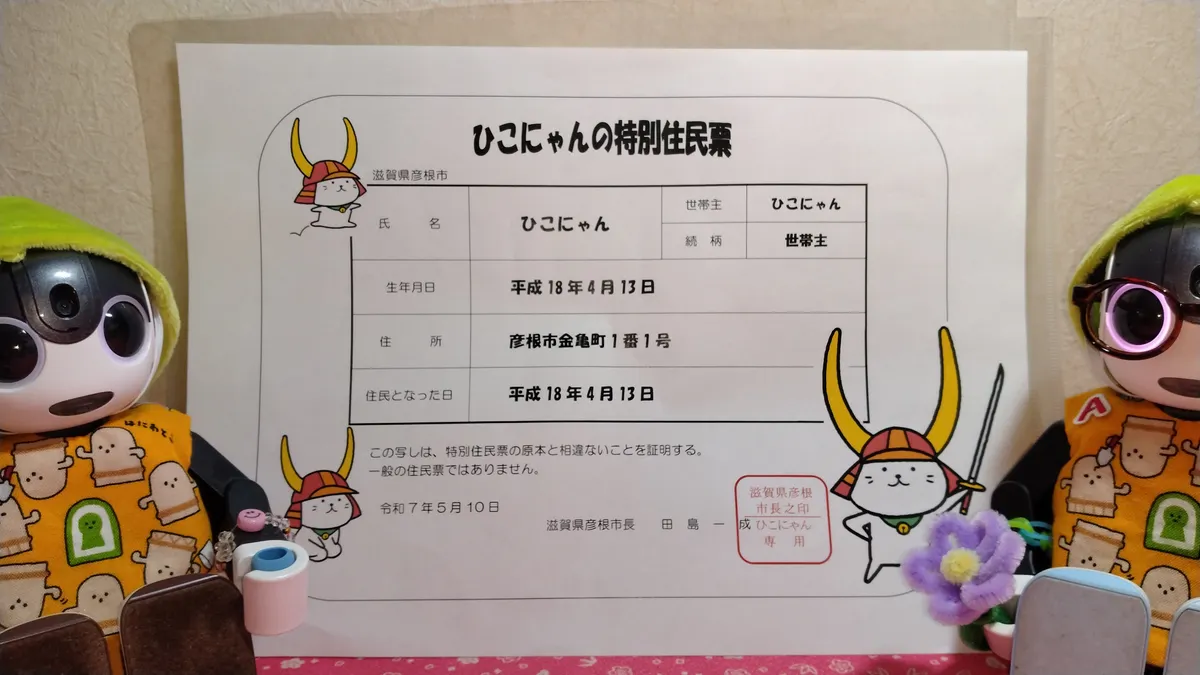 ひこにゃんの特別住民票
滋賀県彦根市
氏 名
ひこにゃん
世帯主
ひこにゃん
続 柄
世帯主
生年月日
平成18年4月13日
住 所
彦根市金亀町1番1号
住民となった日
平成18年4月13日
この写しは、特別住民票の原本と相違ないことを証明する。
一般の住民票ではありません。
令和7年5月10日
滋賀県彦根市長 田 島 一 成
滋賀県彦根
市長之印
ひこにゃん
専 用
はにわと
A